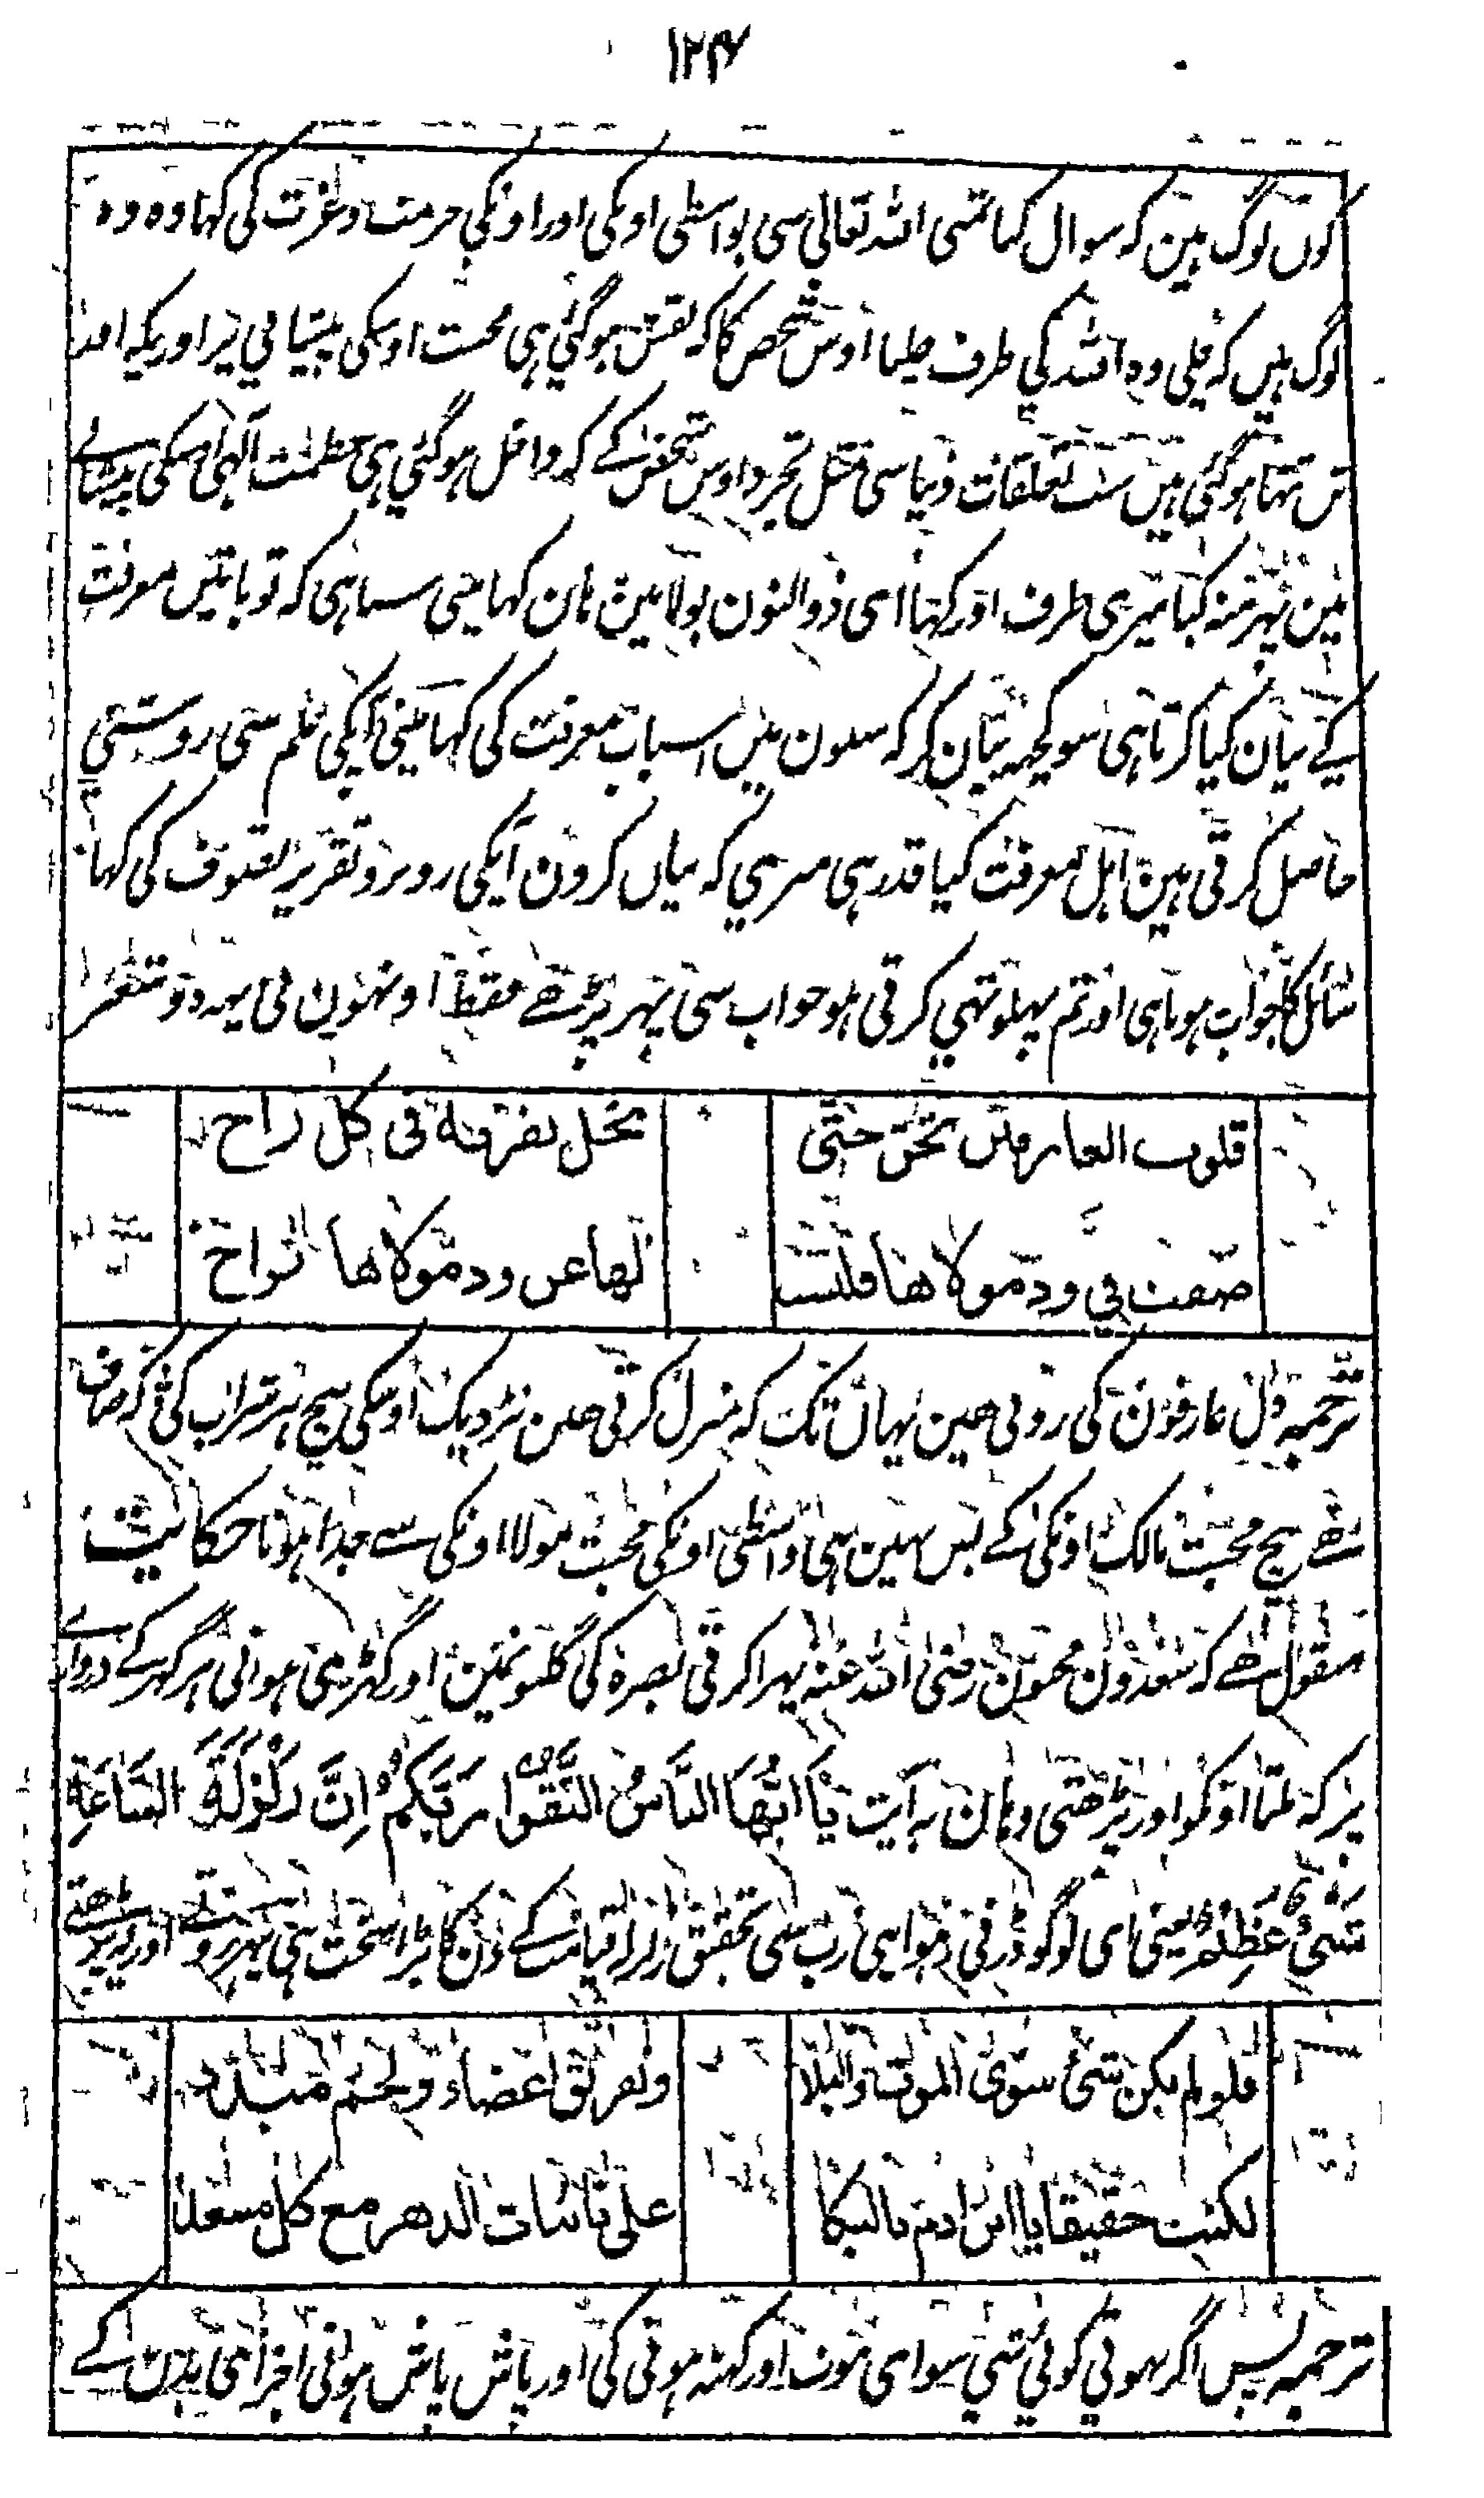 ۱۲۴
کون لوگ ہین کہ سوال کیا تمنی اللہ تعالی سی بواسطی اونکی اور اونکی حرمت و عزت کی کہا وہ وہ
لوگ ہیں کہ چلی وہ اللہ کی طرف چلنا اوس شخص کا کہ نقش ہو گئی ہی محبت اوسکی پیشانی پر اور یکہ اور
تن تنہا ہوگئی ہیں سب تعلقات دنیا سی مثل تجرد اوس شخص کے کہ داخل ہو گئی ہی عظمت الہی اوسکی
مین پہر منہ کیا میری طرف اور کہا ای ذوالنون بولا مین ہان کہا مینی سنا ہی کہ تو باتیں معرفت
کے بیان کیا کرتا ہی سو کچہہ بیان کر کہ سنون میں اسباب معرفت کی کہا مینی آپکی علم سی روشنی
حاصل کرتی ہین اہل معرفت کیا قدر ہی میری کہ بیان کرون آپکی روبرو تقریر تصوف کی کہا
سائل کا جواب ہوتا ہی اور تم پہلو تہی کرتی ہو جواب سی پہر پڑہے فقط اونہون نی یہہ دو شعر
قلوب العارفين تحن حتى
تحل بقربه في كل راح
صفت في ود مولاها فليست
لها عن ود مولاها براح
ترجمہ دل عارفون کی روتی ہین یہان تک کہ منزل کرتی ہین نزدیک اوسکی بیچ ہر شراب کی کہ صاف
ہے بیچ محبت مالک اونکی کے بس نہین ہی واسطی اونکی محبت مولا اونکی سے جدا ہونا حکایت
منقول ہے کہ سعدون مجنون رضی اللہ عنہ پہرا کرتی بصرہ کی گلیونمین اور کہڑی ہوتی ہر گہر کے دروازے
پر کہ ملتا اونکو اور پڑھتی وہان یہ آیت يَا أَيُّهَا النَّاسُ اتَّقُوا رَبَّكُمْ إِنَّ زَلْزَلَةَ السَّاعَةِ
شَيْءٌ عَظِيْمٌ یعنی ای لوگو ڈرتی رہو اپنی رب سی تحقیق زلزلہ قیامت کے دن کا بڑا سخت ہی پہر روتے اور یہ پڑھتے
فلو لم يكن شئ سوى الموت والبلا
وتفريق اعضاء ولحم مبدد
لكنت حقيقا يا ابن ادم بالبكا
على نائبات الدهر مع كل مسعد
ترجمہ پس اگر نہوتی کوئی شی سوای موت اور کہنہ ہونی کی اور پاش پاش ہونی اجزای بدن کے